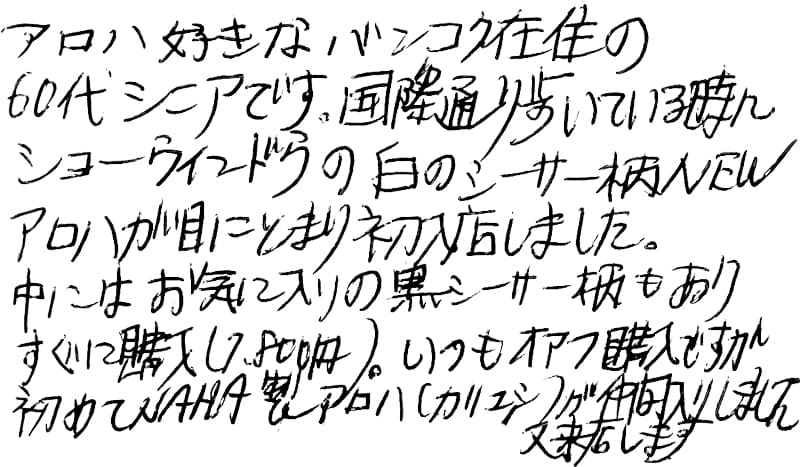 アロハ好きなバンコク在住の
60代シニアです。国際通り歩いている時ん
ショーウィンドゥの白のシーサー柄NEW
アロハが目にとまり初入店しました。
中にはお気に入りの黒シーサー柄もあり
すぐに購入(7.800円)。いつもオアフ購入ですがん
初めてNAHA製アロハ(カリユシ)が仲間入りしまして
又来店します